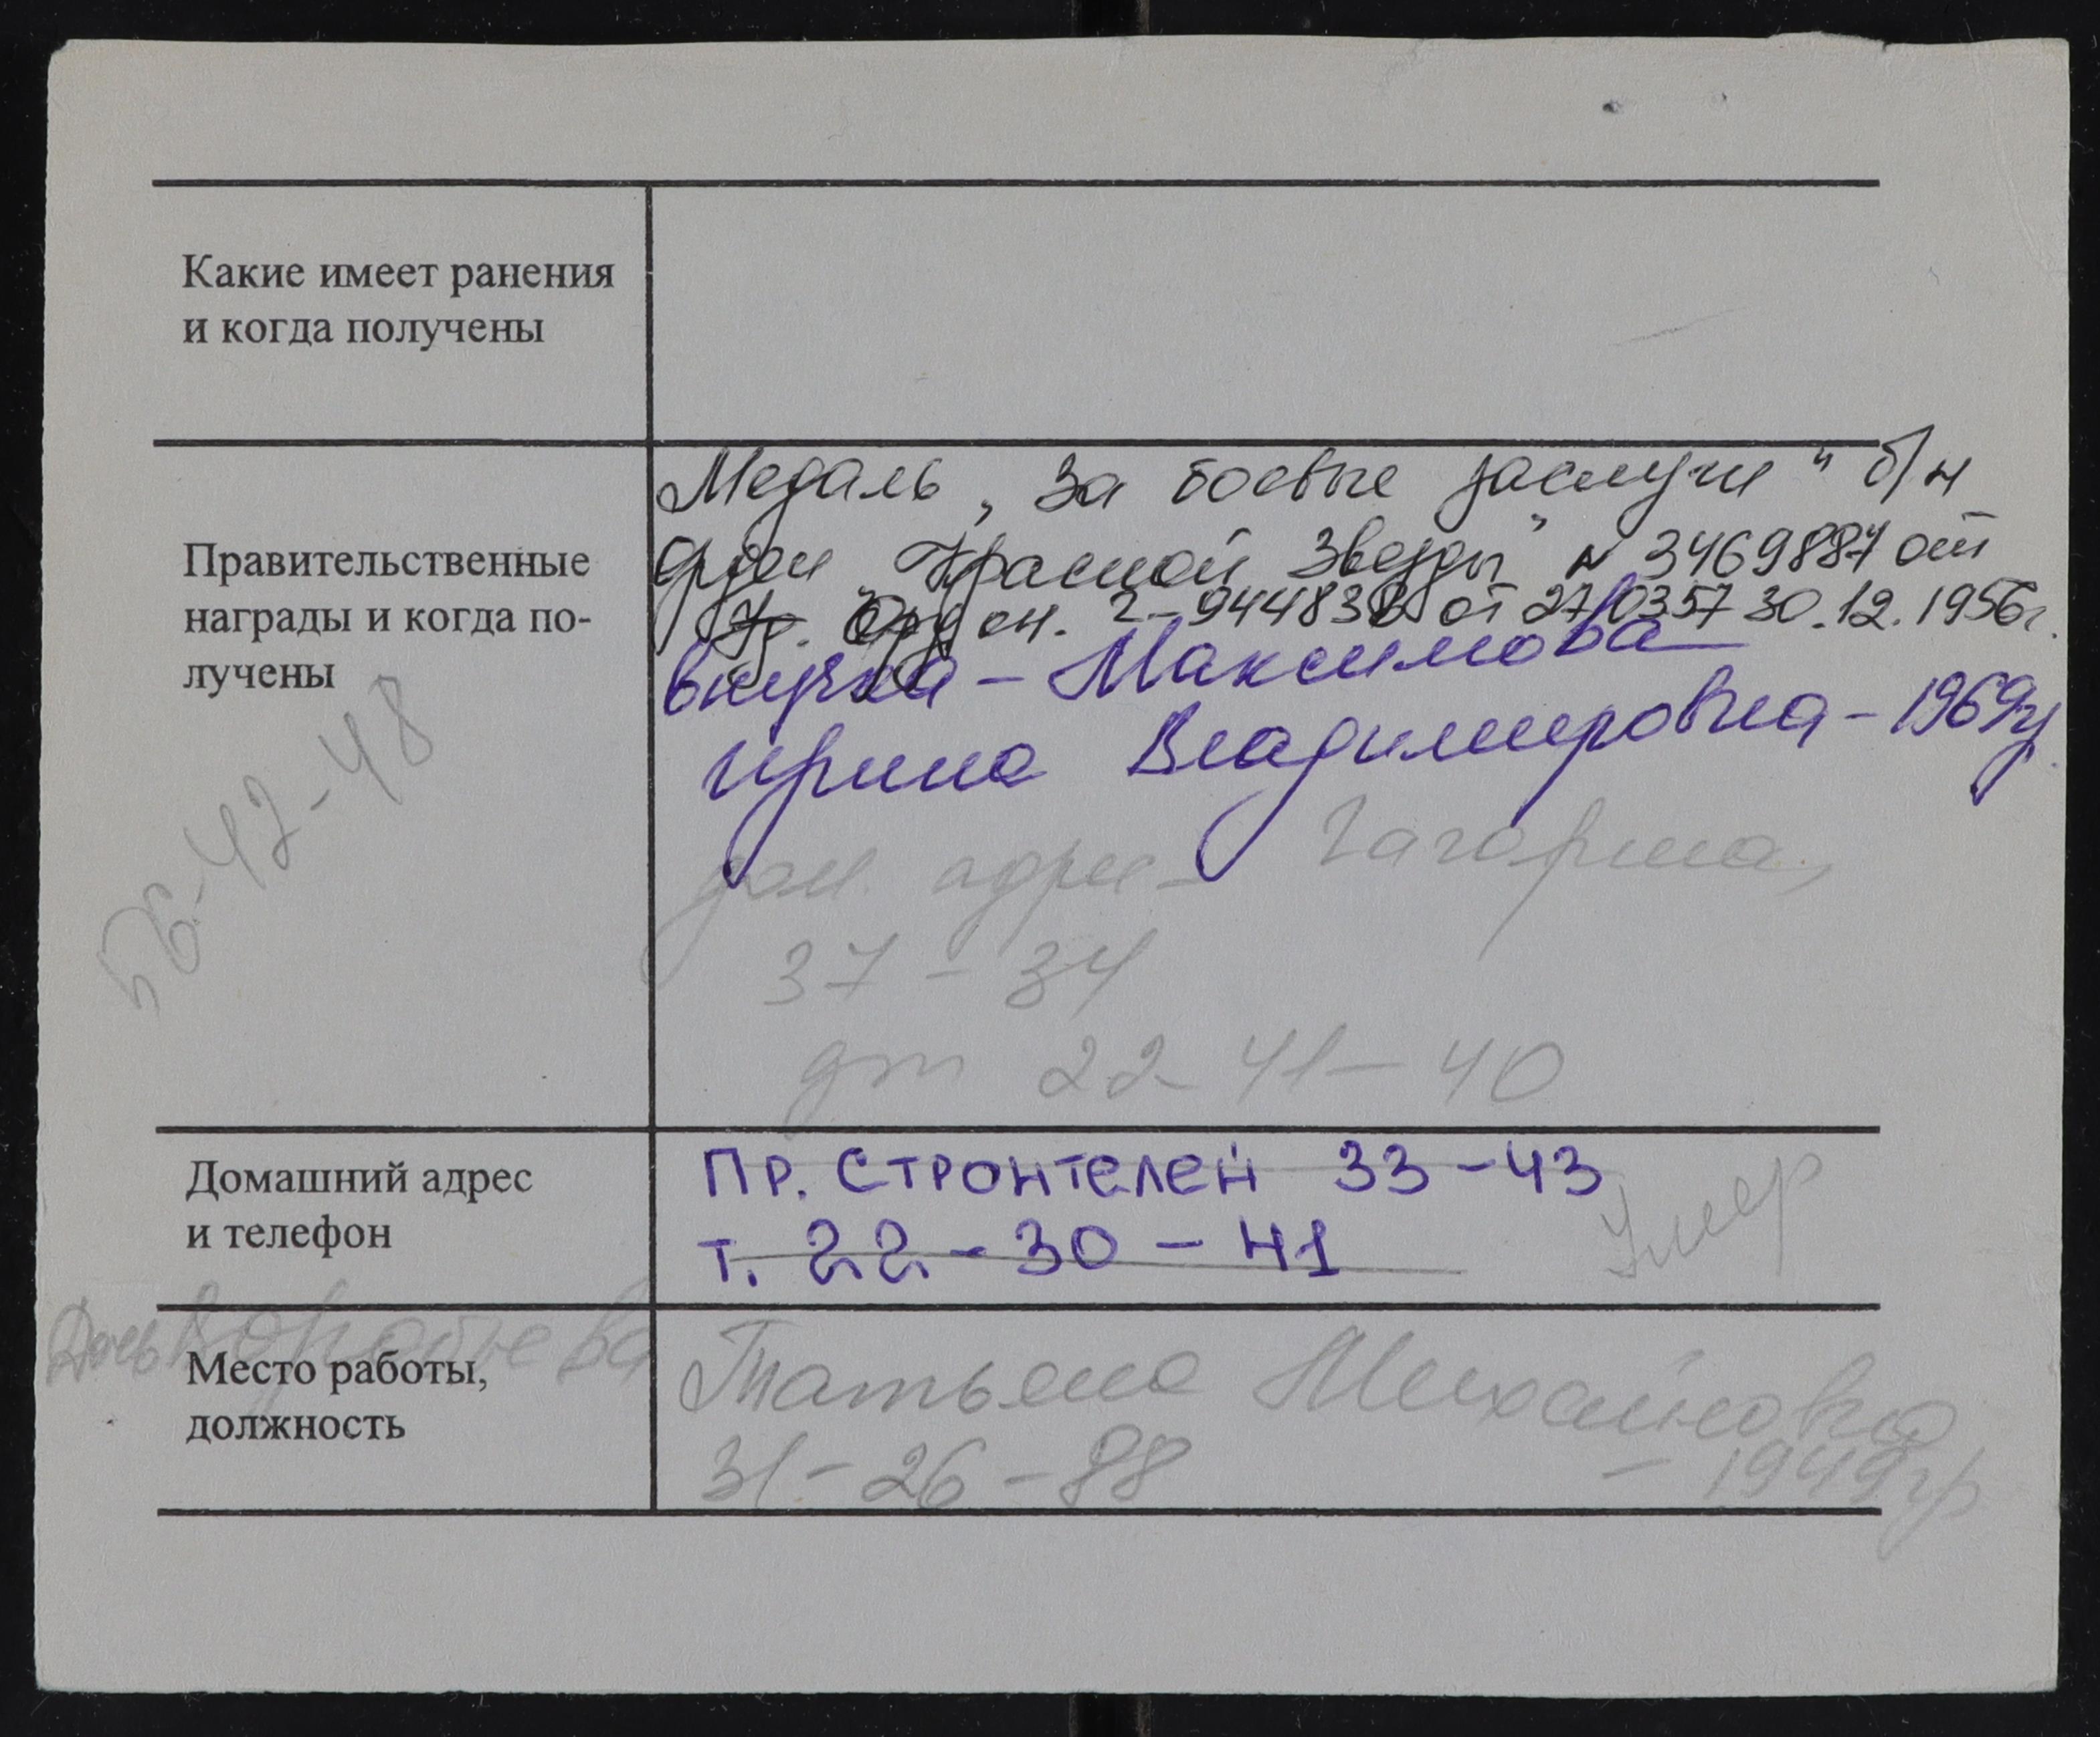 Какие имеет ранения
и когда получены
Правительственные
награды и когда по-
лучены
Медаль „За боевые заслуги" б/н
орден „Красной Звезды" № 3469887 от
30.12.1956г.
Уд. Орден. Г-944838 от 270357
внучка – Максимова
Ирина Владимировна – 1969г
дом. адрес – Гагарина,
37 – 34
дт 22-41-40
56-42-48
Домашний адрес
и телефон
Пр. Строителей 33-43
т. 22-30-41
Умер
Дочь Воробьева Татьяна Михайловна
– 1949 гр
31-26-88
Место работы,
должность